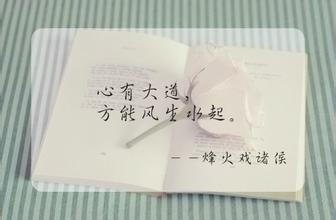 心有大道，
方能风生水起。
——烽火戏诸侯